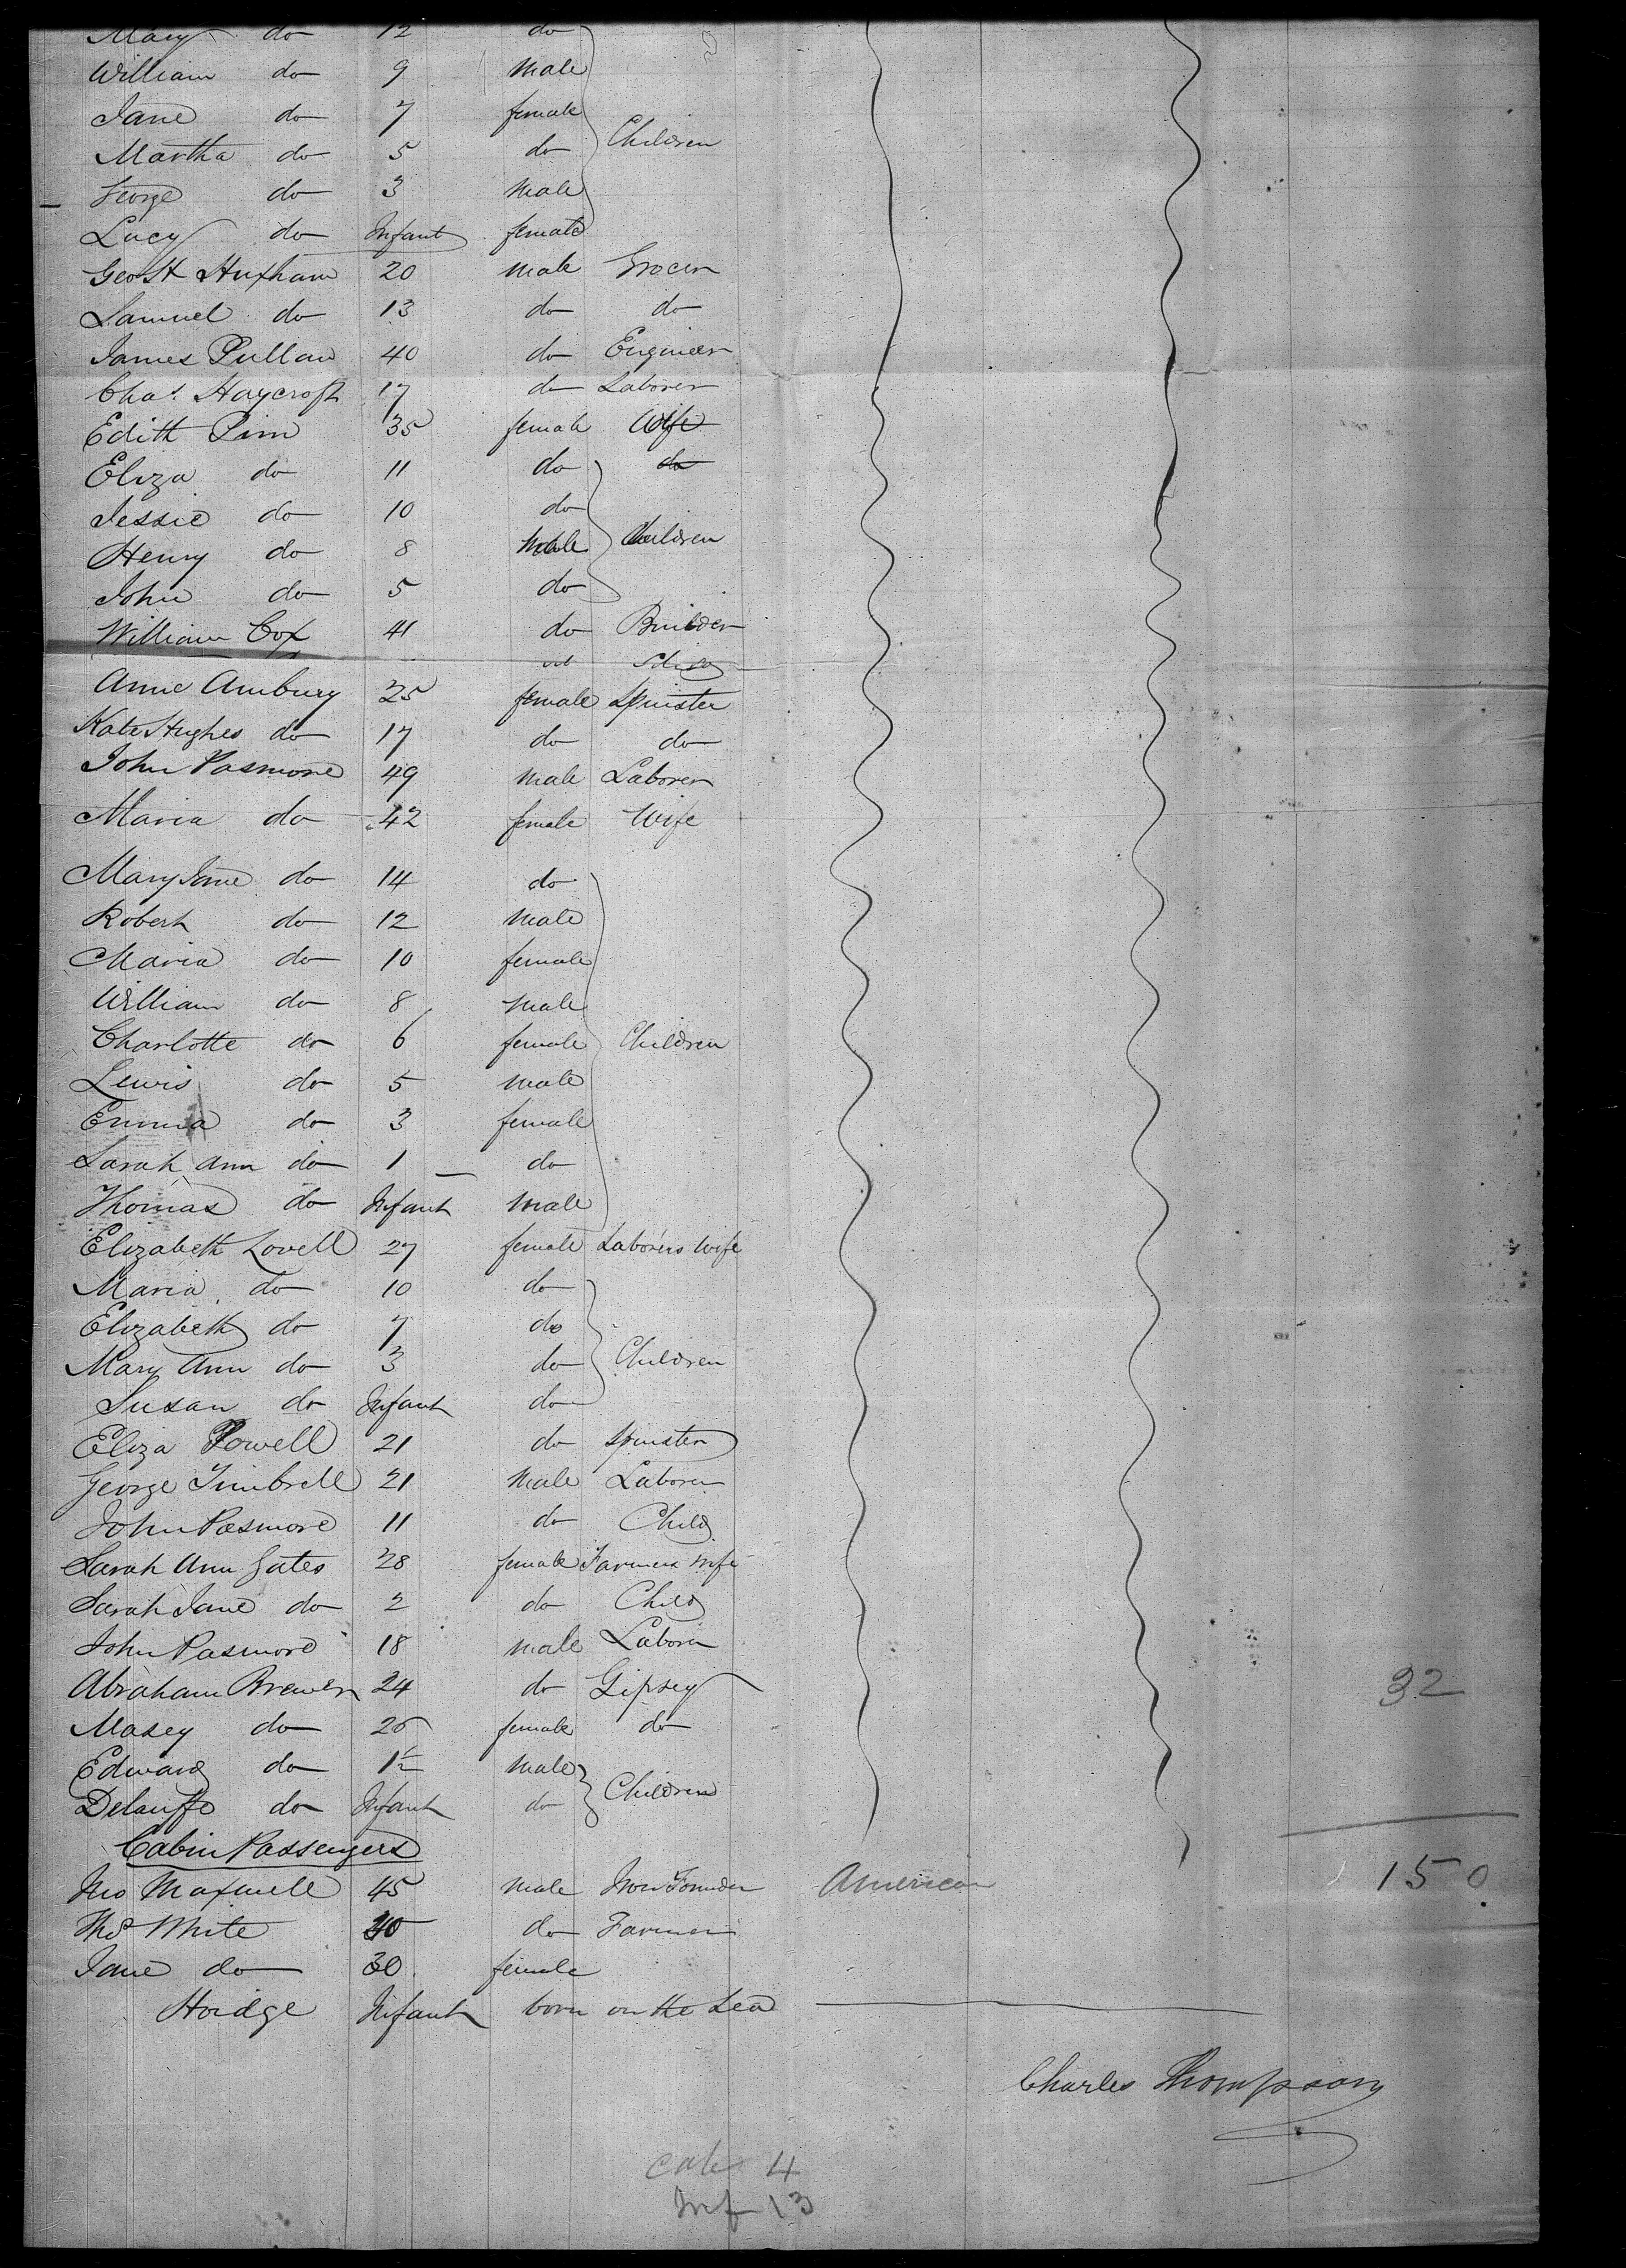 Mary do 12 do
William do 9 Male
Jane do 7 female
Martha do 5 do Children
George do 3 Male
Lucy do Infant female
Geo H Huxham 20 Male Grocer
Samuel do 13 do do
James Pullan 40 do Engineer
Chas. Haycroft 17 do Laborer
Edith Pim 35 female Wife
Eliza do 11 do do
Jessie do 10 do
Henry do 8 Male Children
John do 5 do
William Cox 41 do Builder
Anne Ambury 25 female Spinster
Kate Hughes do 17 do do
John Pasmore 49 Male Laborer
Maria do 42 female Wife
Mary Jane do 14 do
Robert do 12 Male
Maria do 10 female
William do 8 Male
Charlotte do 6 female Children
Lewis do 5 Male
Emma do 3 female
Sarah Ann do 1 do
Thomas do Infant Male
Elizabeth Lovell 27 female Laborers Wife
Maria do 10 do
Elizabeth do 7 do
Mary Ann do 3 do Children
Susan do Infant do
Eliza Powell 21 do Spinster
George Timbrell 21 Male Laborer
John Pasmore 11 do Child
Sarah Ann Gates 28 female Farmers Wife
Sarah Jane do 2 do Child
John Pasmore 18 Male Laborer
Abraham Brewer 24 do Gipsey 32
Masey do 26 female do
Edward do 1 Male
do Infant do Children
Cabin Passengers
Jno Maxwell 45 Male Iron Founder American 150
Thos White 40 do Farmer
Jane do 30 female
Hoidge Infant born on the Sea
Charles Thompson
Cab 4
Inf 13